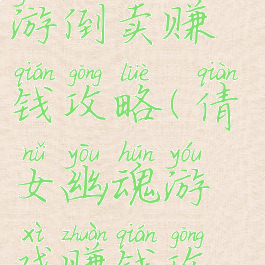 游倒卖赚
qián gōng lüè qiàn
钱攻略(倩
nǚ yōu hún yóu
女幽魂游
xì zhuàn qián gōng
戏赚钱攻